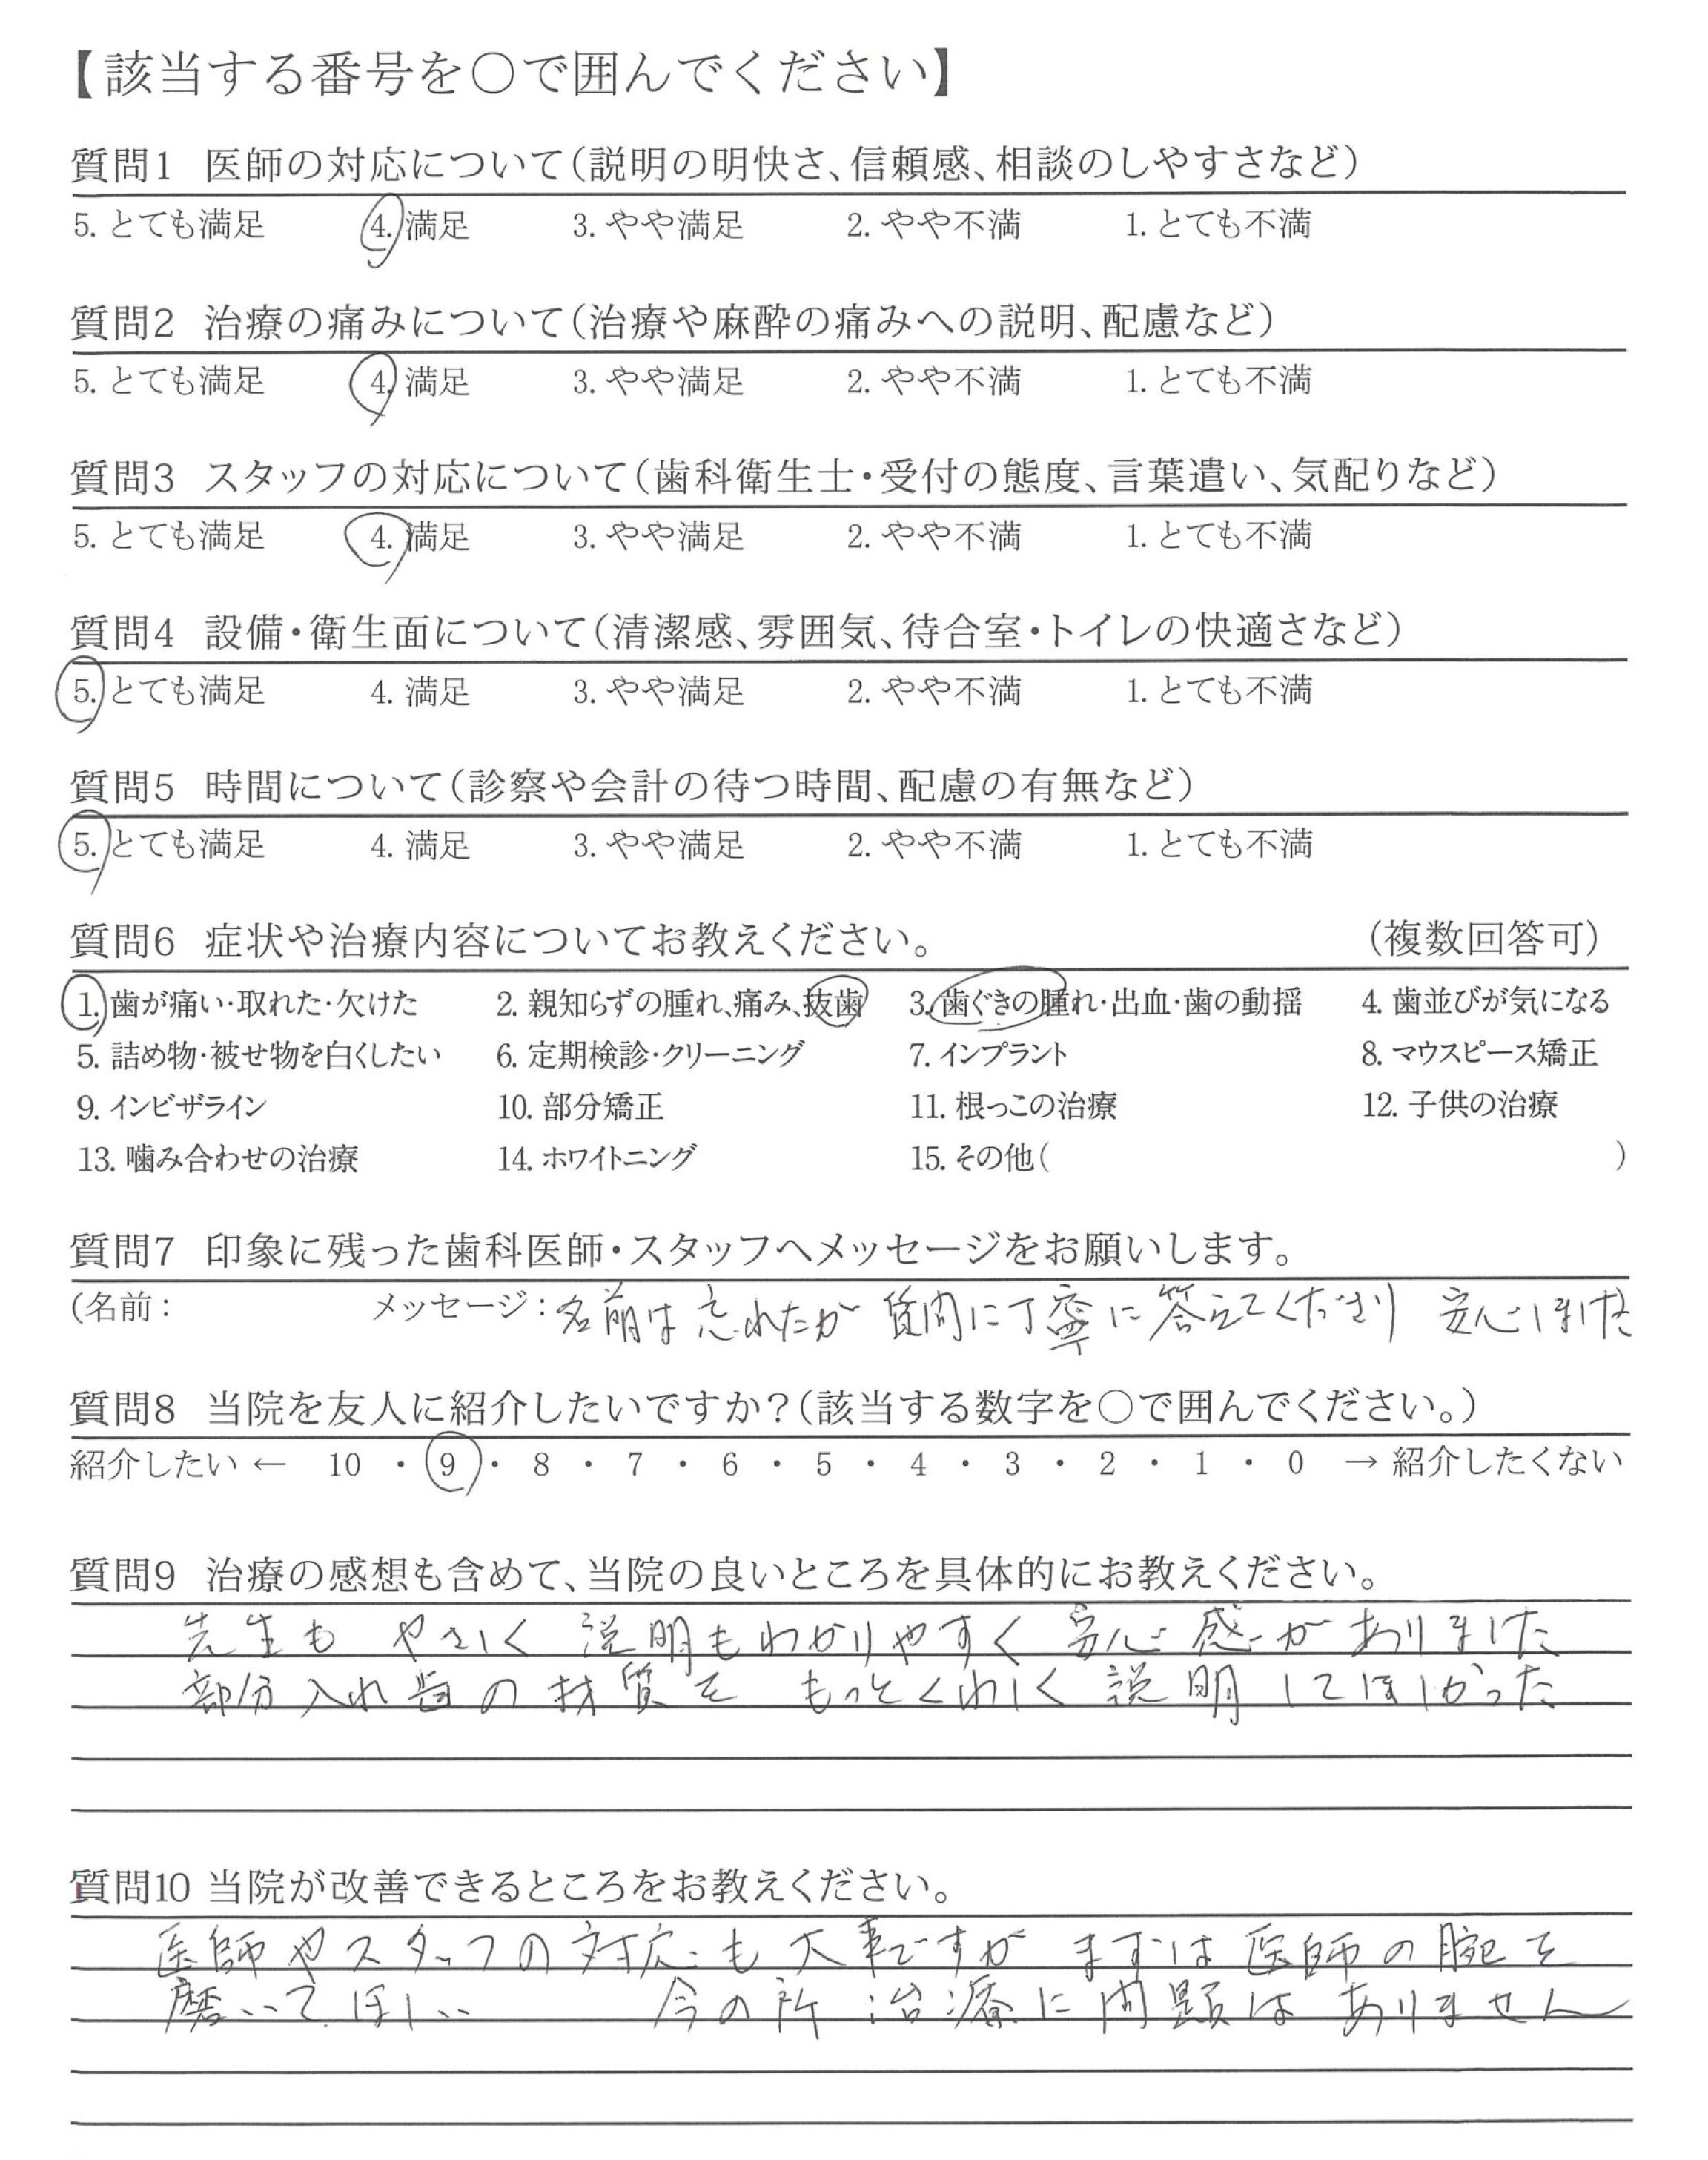 【該当する番号を○で囲んでください】
質問1 医師の対応について(説明の明快さ、信頼感、相談のしやすさなど)
5. とても満足 4. 満足 3. やや満足 2. やや不満 1. とても不満
質問2 治療の痛みについて(治療や麻酔の痛みへの説明、配慮など)
5. とても満足 4. 満足 3. やや満足 2. やや不満 1. とても不満
質問3 スタッフの対応について(歯科衛生士・受付の態度、言葉遣い、気配りなど)
5. とても満足 4. 満足 3. やや満足 2. やや不満 1. とても不満
質問4 設備・衛生面について(清潔感、雰囲気、待合室・トイレの快適さなど)
5. とても満足 4. 満足 3. やや満足 2. やや不満 1. とても不満
質問5 時間について(診察や会計の待つ時間、配慮の有無など)
5. とても満足 4. 満足 3. やや満足 2. やや不満 1. とても不満
質問6 症状や治療内容についてお教えください。 (複数回答可)
1. 歯が痛い・取れた・欠けた 2. 親知らずの腫れ、痛み、抜歯 3. 歯ぐきの腫れ・出血・歯の動揺 4. 歯並びが気になる
5. 詰め物・被せ物を白くしたい 6. 定期検診・クリーニング 7. インプラント 8. マウスピース矯正
9. インビザライン 10. 部分矯正 11. 根っこの治療 12. 子供の治療
13. 噛み合わせの治療 14. ホワイトニング 15. その他( )
質問7 印象に残った歯科医師・スタッフへメッセージをお願いします。
(名前: メッセージ:名前は忘れたが 質問に丁寧に答えてくださり 安心しました
質問8 当院を友人に紹介したいですか?(該当する数字を○で囲んでください。)
紹介したい ← 10 ・ 9 ・ 8 ・ 7 ・ 6 ・ 5 ・ 4 ・ 3 ・ 2 ・ 1 ・ 0 → 紹介したくない
質問9 治療の感想も含めて、当院の良いところを具体的にお教えください。
先生も やさしく 説明もわかりやすく 安心感がありました
部分入れ歯の材質を もっとくわしく 説明してほしかった
質問10 当院が改善できるところをお教えください。
医師やスタッフの対応も大事ですが まずは医師の腕を
磨いてほしい 今の所 治療に問題はありません